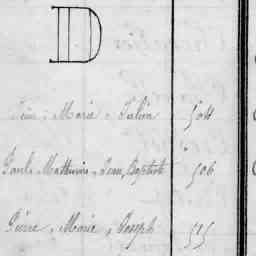 D
Marie, Julien 504
Paul, Mathurin, Jean, Baptiste 506
Pierre, Marie, Joseph 515